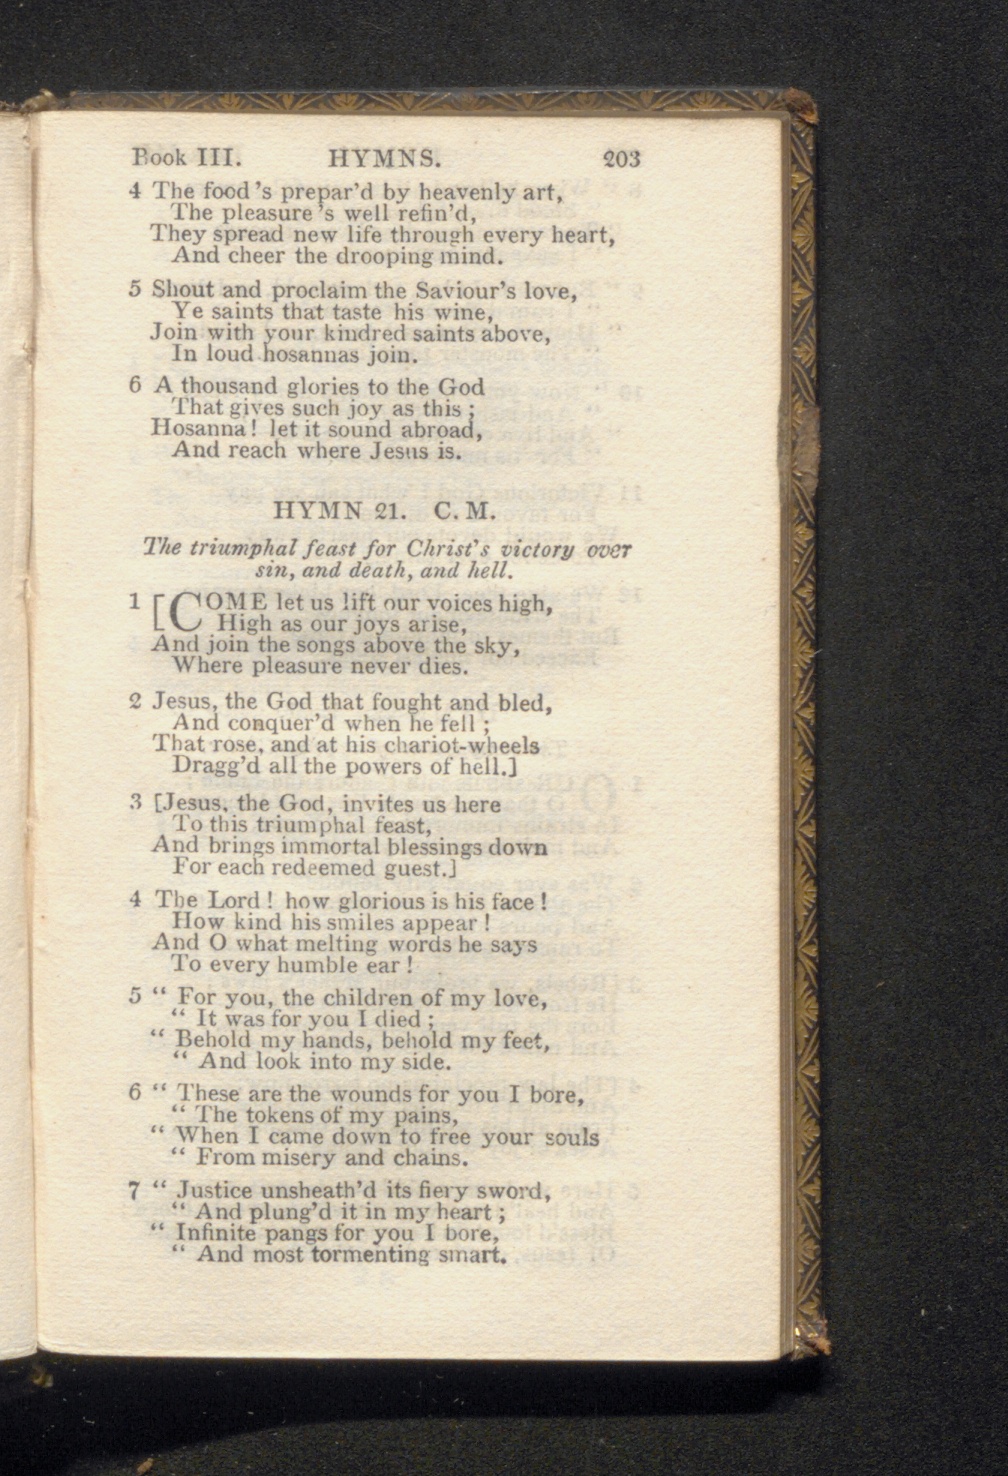 Book III. HYMNS. 203
4 The food's prepar'd by heavenly art,
The pleasure's well refin'd,
They spread new life through every heart,
And cheer the drooping mind.
5 Shout and proclaim the Saviour's love,
Ye saints that taste his wine,
Join with your kindred saints above,
In loud hosannas join.
6 A thousand glories to the God
That gives such joy as this ;
Hosanna! let it sound abroad,
And reach where Jesus is.
HYMN 21. C. M.
The triumphal feast for Christ's victory over
sin, and death, and hell.
1 [COME let us lift our voices high,
High as our joys arise,
And join the songs above the sky,
Where pleasure never dies.
2 Jesus, the God that fought and bled,
And conquer'd when he fell ;
That rose, and at his chariot-wheels
Dragg'd all the powers of hell.]
3 [Jesus, the God, invites us here
To this triumphal feast,
And brings immortal blessings down
For each redeemed guest.]
4 The Lord ! how glorious is his face !
How kind his smiles appear !
And O what melting words he says
To every humble ear !
5 “ For you, the children of my love,
“ It was for you I died ;
“ Behold my hands, behold my feet,
“ And look into my side.
6 “ These are the wounds for you I bore,
“ The tokens of my pains,
“ When I came down to free your souls
“ From misery and chains.
7 “ Justice unsheath'd its fiery sword,
“ And plung'd it in my heart ;
“ Infinite pangs for you I bore,
“ And most tormenting smart.